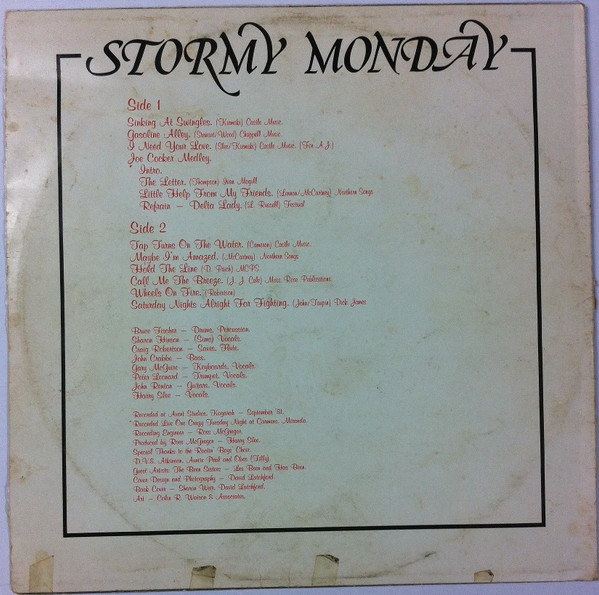 STORMY MONDAY
Side 1
Sinking At Swingles. Castle Music.
Gasoline Alley. (Stewart/Wood) Chappell Music
I Need Your Love. Castle Music. (For A.J.)
Joe Cocker Medley.
Intro.
The Letter. (Thompson)
Little Help From My Friends. (Lennon/McCartney) Northern Songs
Refrain — Delta Lady. (L. Russell) Festival
Side 2
Tap Turns On The Water. (Cameron) Castle Music.
Maybe I'm Amazed. (McCartney) Northern Songs
Hold The Line (D. Paich) MCPS
Call Me The Breeze. (J. J. Cale) Moss Rose Publications
Wheels On Fire. (Robertson)
Saturday Nights Alright For Fighting. (John/Taupin) Dick James
Bruce — Drums, Percussion.
Sharon — (Sims) Vocals.
Craig Robertson — Saxes, Flute.
John — Bass.
Gary McGuire — Keyboards, Vocals.
Peter Leonard — Trumpet, Vocals.
John — Guitars, Vocals.
Harry Slee — Vocals.
Recorded at Studios, Kogarah — September '81.
*Recorded Live One Crazy Tuesday Night at Carmens, Miranda.
Recording Engineer — Ross McGregor.
Produced by Ross McGregor — Harry Slee.
Special Thanks to the Boys'
D.V.S. Atkinson, Paul and
Guest Artists: The Bern Sisters — Les Bern and Bern
Cover Design and Photography — David Latchford.
Back Cover — Sharon David Latchford.
Art — Colin R. Watson & Associates.